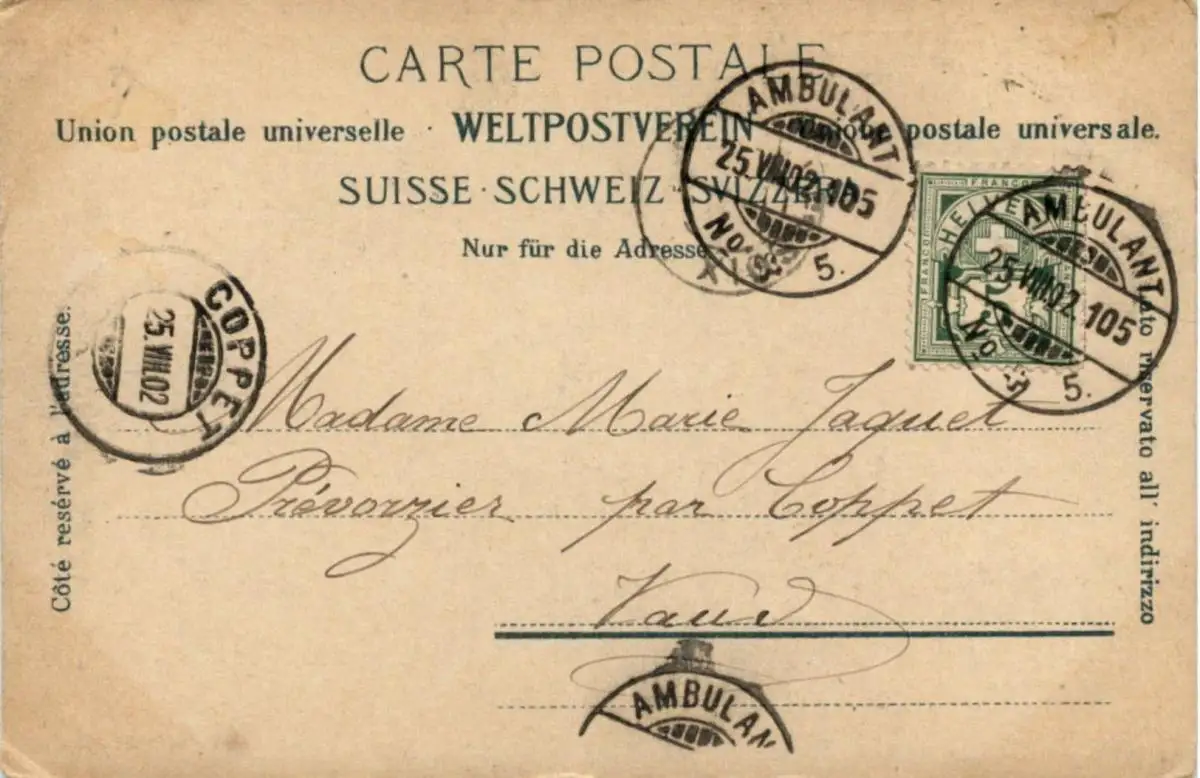 CARTE POSTALE
Union postale universelle · WELTPOSTVEREIN postale universale.
SUISSE · SCHWEIZ · SVIZZERA
Nur für die Adresse
Côté resérvé à l'adresse.
Lato riservato all' indirizzo
AMBULANT
25.VIII.02.105
No
5.
FRANCO
HELVE
FRANCO
AMBULANT
25.VIII.02.105
No
5.
COPPET
25.VIII.02
Madame Marie Jaquet
Prévorzier par Coppet
Vaud
AMBULAN